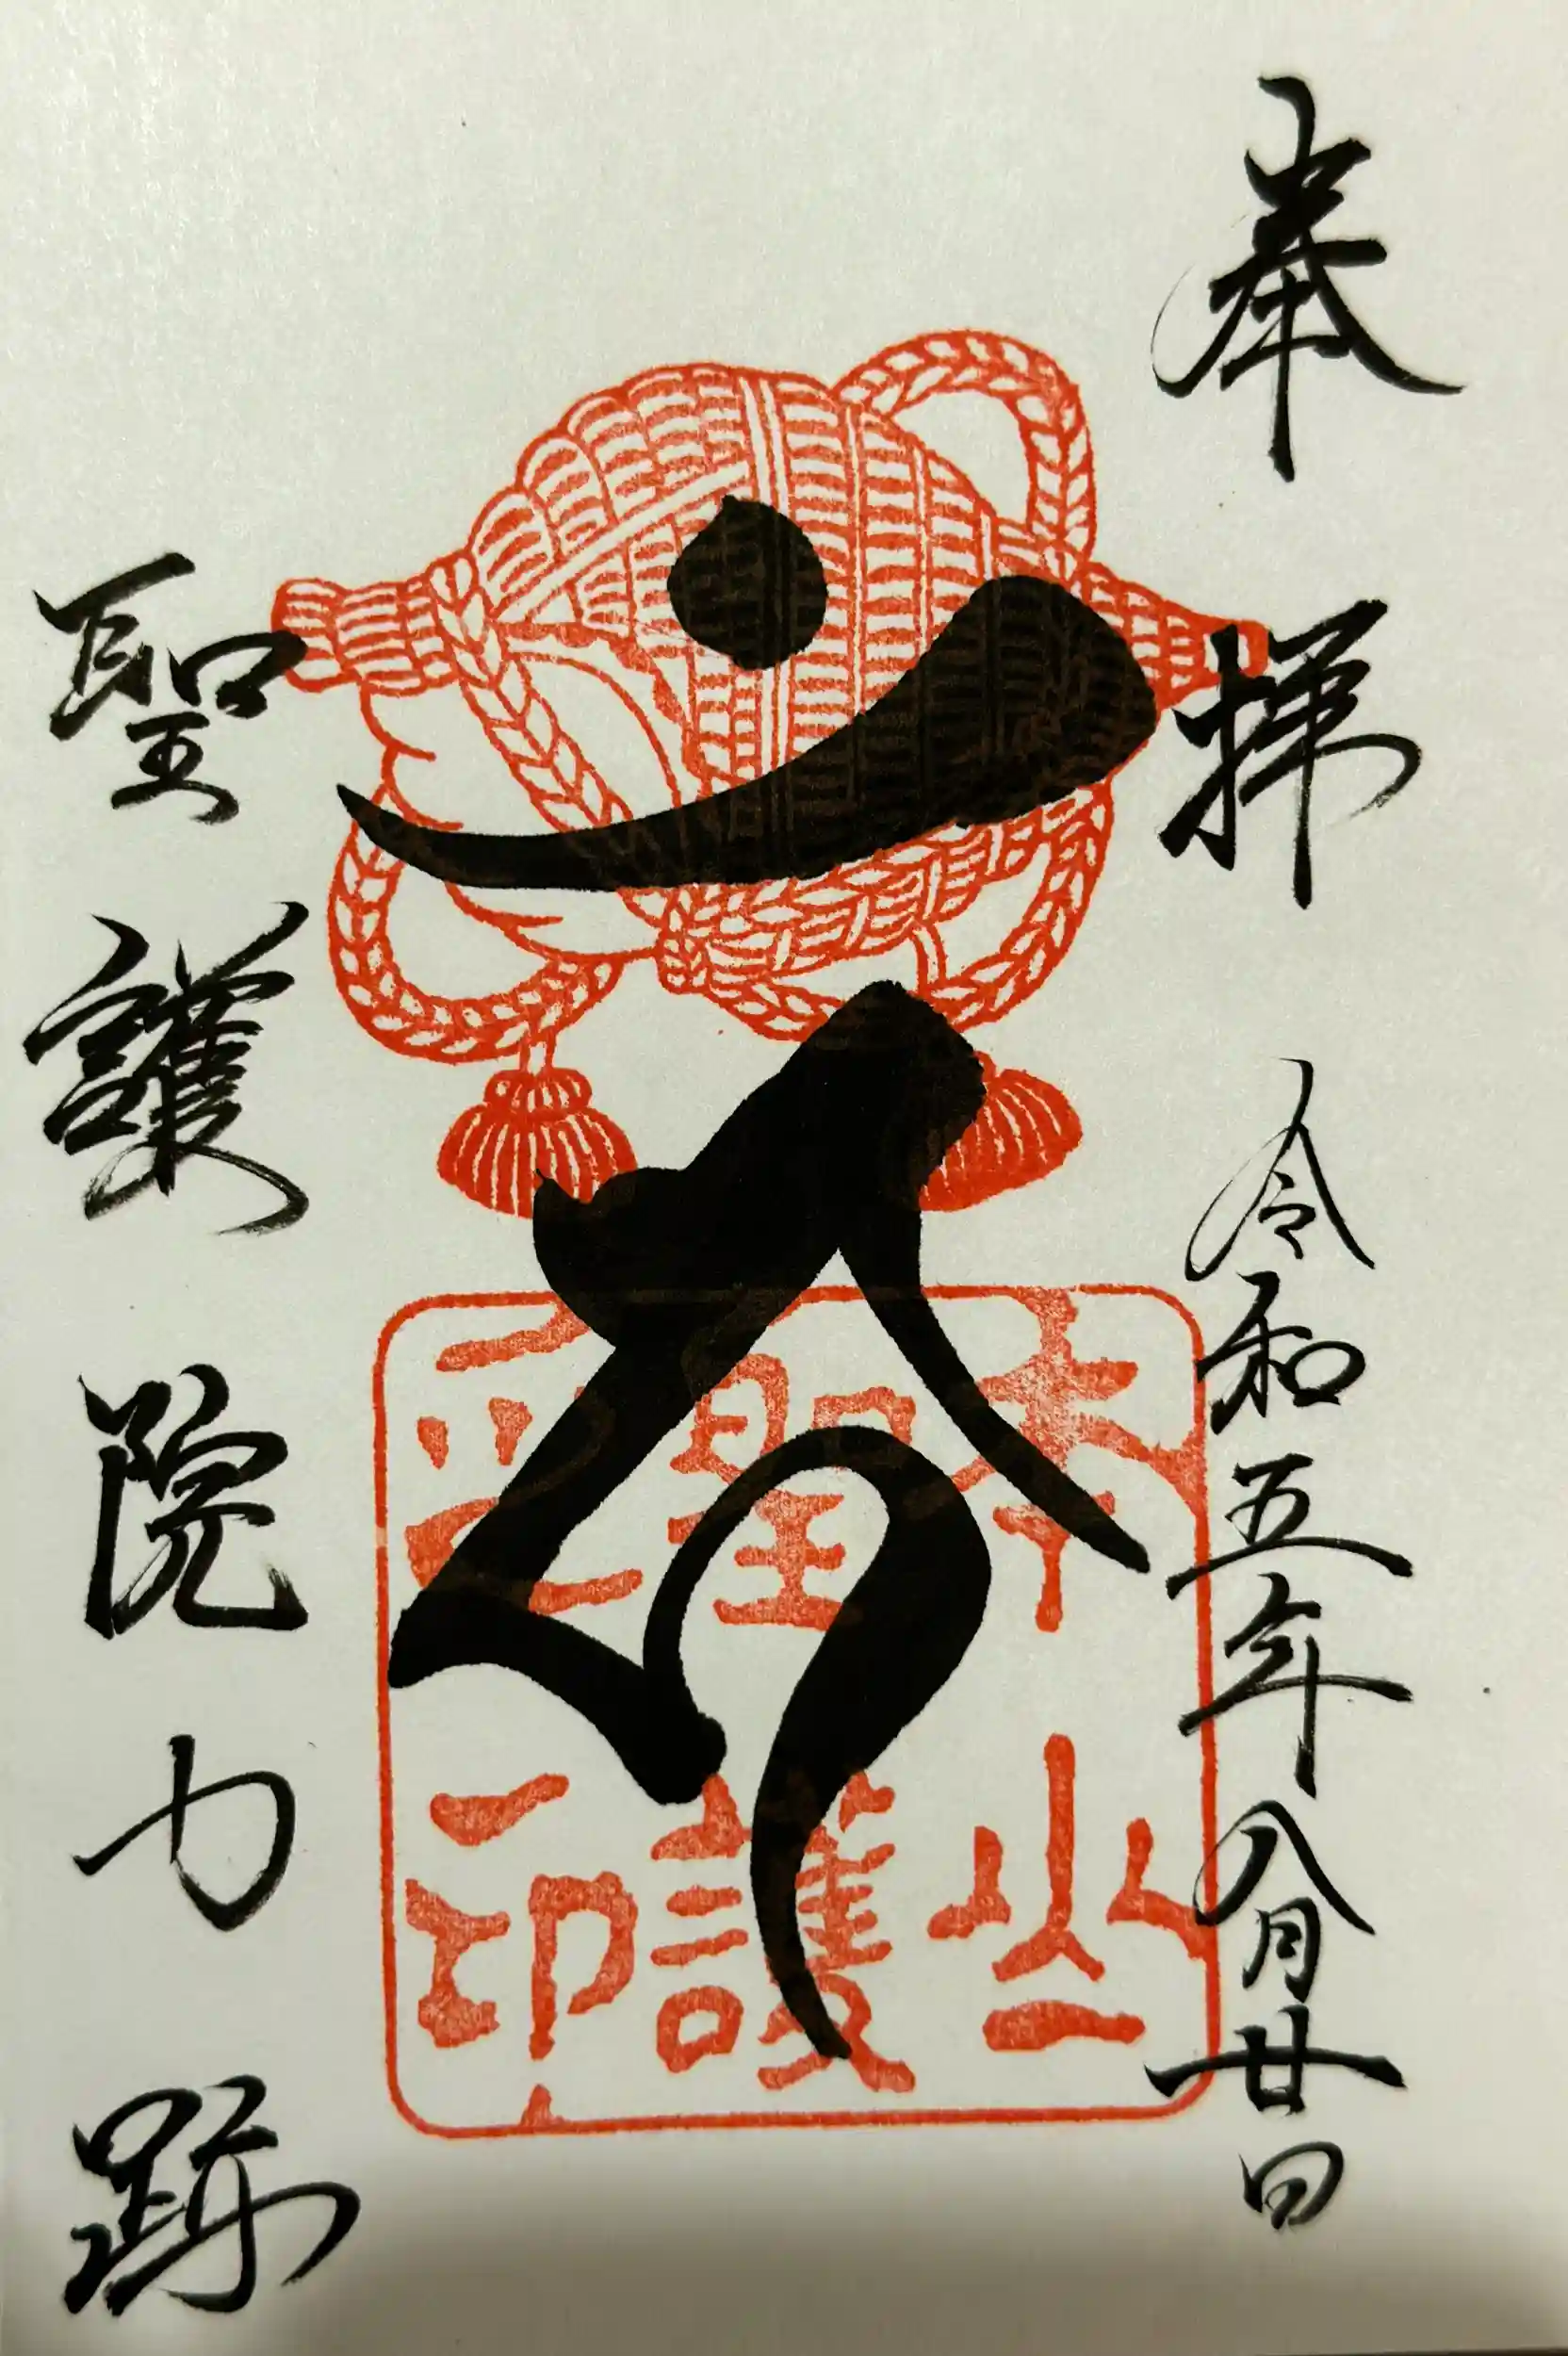 奉拝
令和五年八月廿日
本山
聖護
印
聖護院力跡